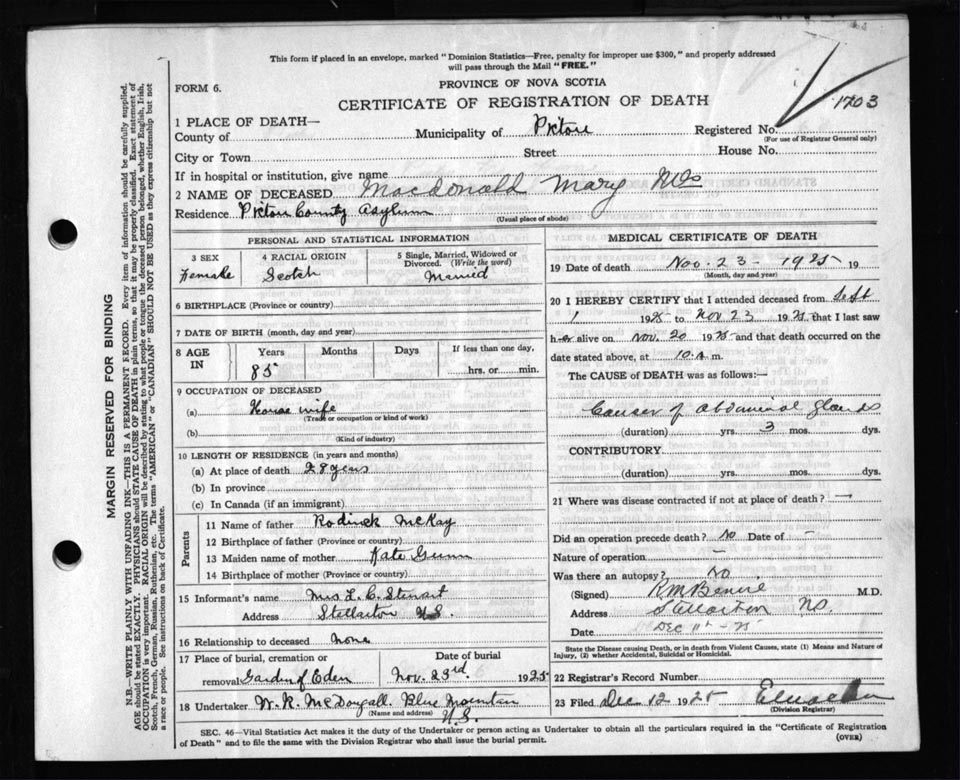 This form if placed in an envelope, marked "Dominion Statistics—Free, penalty for improper use $300," and properly addressed
will pass through the Mail "FREE."
FORM 6.
PROVINCE OF NOVA SCOTIA
CERTIFICATE OF REGISTRATION OF DEATH
1203
1 PLACE OF DEATH—
County of
Municipality of Pictou
Registered No.
(For use of Registrar General only)
City or Town
Street
House No.
If in hospital or institution, give name
2 NAME OF DECEASED Macdonald Mary Mrs
Residence Pictou County Asylum
(Usual place of abode)
PERSONAL AND STATISTICAL INFORMATION
3 SEX
Female
4 RACIAL ORIGIN
Scotch
5 Single, Married, Widowed or
Divorced. (Write the word)
Married
6 BIRTHPLACE (Province or country)
7 DATE OF BIRTH (month, day and year)
8 AGE
IN
Years
Months
Days
If less than one day,
85
hrs. or min.
9 OCCUPATION OF DECEASED
(a) House wife
(Trade or occupation or kind of work)
(b)
(Kind of industry)
10 LENGTH OF RESIDENCE (in years and months)
(a) At place of death 28 years
(b) In province
(c) In Canada (if an immigrant)
Parents
11 Name of father Rodrick McKay
12 Birthplace of father (Province or country)
13 Maiden name of mother Kate Gunn
14 Birthplace of mother (Province or country)
15 Informant's name Mrs L. C. Stewart
Address Stellarton N.S.
16 Relationship to deceased none
17 Place of burial, cremation or
removal Garden of Eden
Date of burial
Nov. 23rd. 1925
18 Undertaker W. R. McDougall. Blue Mountain
(Name and address) N.S.
MEDICAL CERTIFICATE OF DEATH
19 Date of death Nov. 23 - 1925 19
(Month, day and year)
20 I HEREBY CERTIFY that I attended deceased from Sept
1 1925 to Nov 23 1925 that I last saw
her alive on Nov. 20 1925 and that death occurred on the
date stated above, at 10 A m.
The CAUSE of DEATH was as follows:—
Cancer of abdominal glands
(duration) yrs. 3 mos. dys.
CONTRIBUTORY
(duration) yrs. mos. dys.
21 Where was disease contracted if not at place of death? —
Did an operation precede death? No Date of —
Nature of operation —
Was there an autopsy? No
(Signed) M.D.
Address Stellarton NS.
Date Dec 11th - 25
State the Disease causing Death, or in death from Violent Causes, state (1) Means and Nature of
Injury, (2) whether Accidental, Suicidal or Homicidal.
22 Registrar's Record Number
23 Filed Dec 12 1925
(Division Registrar)
SEC. 46—Vital Statistics Act makes it the duty of the Undertaker or person acting as Undertaker to obtain all the particulars required in the "Certificate of Registration
of Death" and to file the same with the Division Registrar who shall issue the burial permit.
(OVER)
MARGIN RESERVED FOR BINDING
N.B.—WRITE PLAINLY WITH UNFADING INK—THIS IS A PERMANENT RECORD. Every item of information should be carefully supplied.
AGE should be stated EXACTLY. PHYSICIANS should STATE CAUSE OF DEATH in plain terms, so that it may be properly classified. Exact statement of
OCCUPATION is very important. RACIAL ORIGIN will be described by stating to what people or tongue the deceased person belonged, whether English, Irish,
Scotch, French, German, Russian, Ruthenian, etc. The terms "AMERICAN" or "CANADIAN" SHOULD NOT BE USED as they express citizenship but not
a race or people. See instructions on back of Certificate.